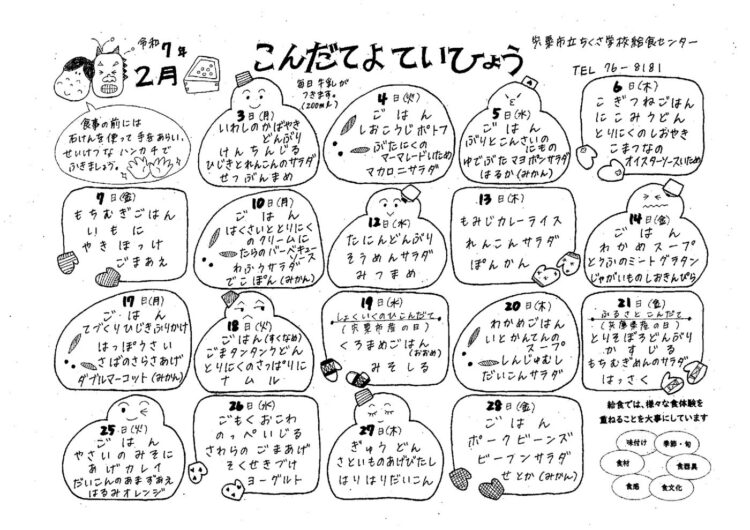 令和7年
2月
こんだてよていひょう
宍粟市立ちくさ学校給食センター
TEL 76-8181
毎日 牛乳が
つきます。
(200ml)
食事の前には
石けんを使って手をあらい、
せいけつなハンカチで
ふきましょう。
3日(月)
いわしのかばやき
どんぶり
けんちんじる
ひじきとれんこんのサラダ
せつぶんまめ
4日(火)
ごはん
しおこうじポトフ
ぶたにくの
マーマレードいため
マカロニサラダ
5日(水)
ごはん
ぶりとこんさいの
にもの
ゆでぶたマヨポンサラダ
はるか(みかん)
6日(木)
こぎつねごはん
にこみうどん
とりにくのしおやき
こまつなの
オイスターソースいため
7日(金)
もちむぎごはん
いもに
やきほっけ
ごまあえ
10日(月)
ごはん
はくさいととりにく
のクリームに
たらのバーベキュー
ソース
わふうサラダ
でこぽん(みかん)
12日(水)
たにんどんぶり
そうめんサラダ
みつまめ
13日(木)
もみじカレーライス
れんこんサラダ
ぽんかん
14日(金)
ごはん
わかめスープ
とうふのミートグラタン
じゃがいものしおきんぴら
17日(月)
ごはん
てづくりひじきふりかけ
はっぽうさい
さばのさらさあげ
ダブルマーコット(みかん)
18日(火)
ごはん(すくなめ)
ごまタンタンうどん
とりにくのさっぱりに
ナムル
19日(水)
しょくいくのひこんだて
(宍粟市産の日)
くろまめごはん
(おおめ)
みそしる
20日(木)
わかめごはん
いとかんてんの
スープ
しんじゅむし
だいこんサラダ
21日(金)
ふるさとこんだて
(兵庫県産の日)
とりそぼろどんぶり
かすじる
もちむぎめんのサラダ
はっさく
25日(火)
ごはん
やさいのみそに
あげカレイ
だいこんのあまずあえ
はるみオレンジ
26日(水)
ごもくおこわ
のっぺいじる
さわらのごまあげ
そくせきづけ
ヨーグルト
27日(木)
ぎゅうどん
さといものあげびたし
はりはりだいこん
28日(金)
ごはん
ポークビーンズ
ビーフンサラダ
せとか(みかん)
給食では、様々な食体験を
重ねることを大事にしています
味付け
季節・旬
食材
食器具
食感
食文化